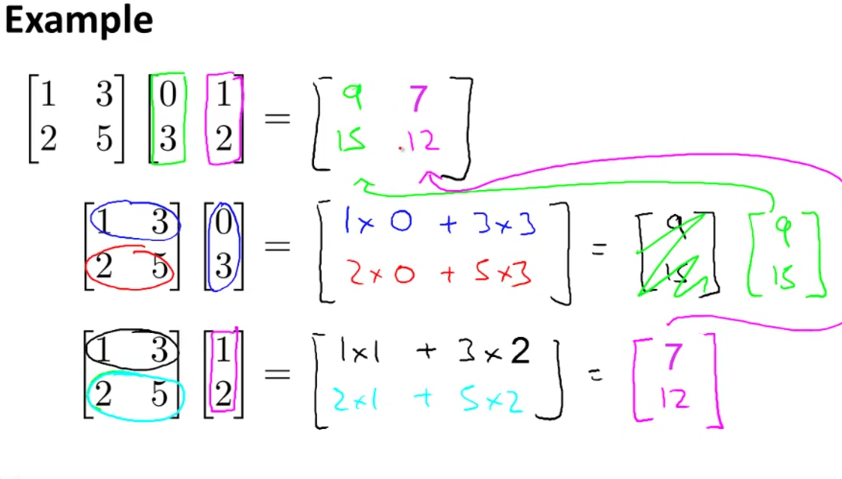 Example
[1 3; 2 5] [0 1; 3 2] = [9 7; 15 .12]
[1 3; 2 5] [0; 3] = [1 × 0 + 3 × 3; 2 × 0 + 5 × 3] = [9; 15] [9; 15]
[1 3; 2 5] [1; 2] = [1 × 1 + 3 × 2; 2 × 1 + 5 × 2] = [7; 12]